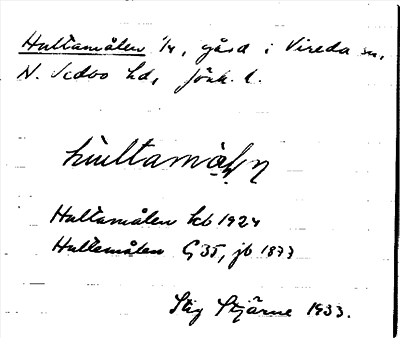 Hultamålen 1/4, gård i Vireda sn,
N. Vedbo hd, Jönk. l.
hùltamå̀ḷṇ
Hultamålen kb 1924
Hultemålen G35, jb 1877
Stig Stjärne 1933.